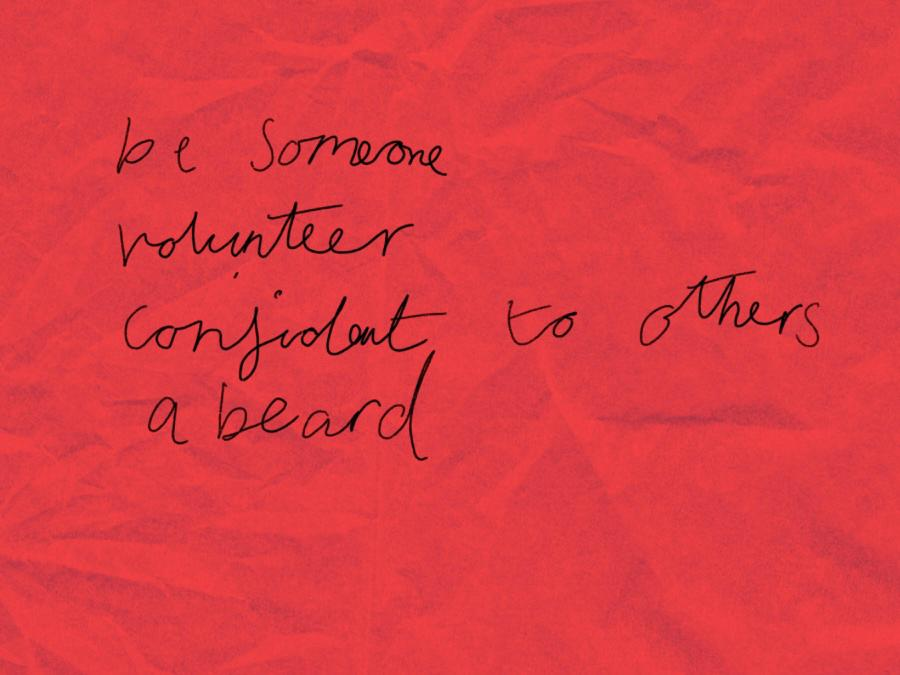 be someone
volunteer
confident to others
a beard